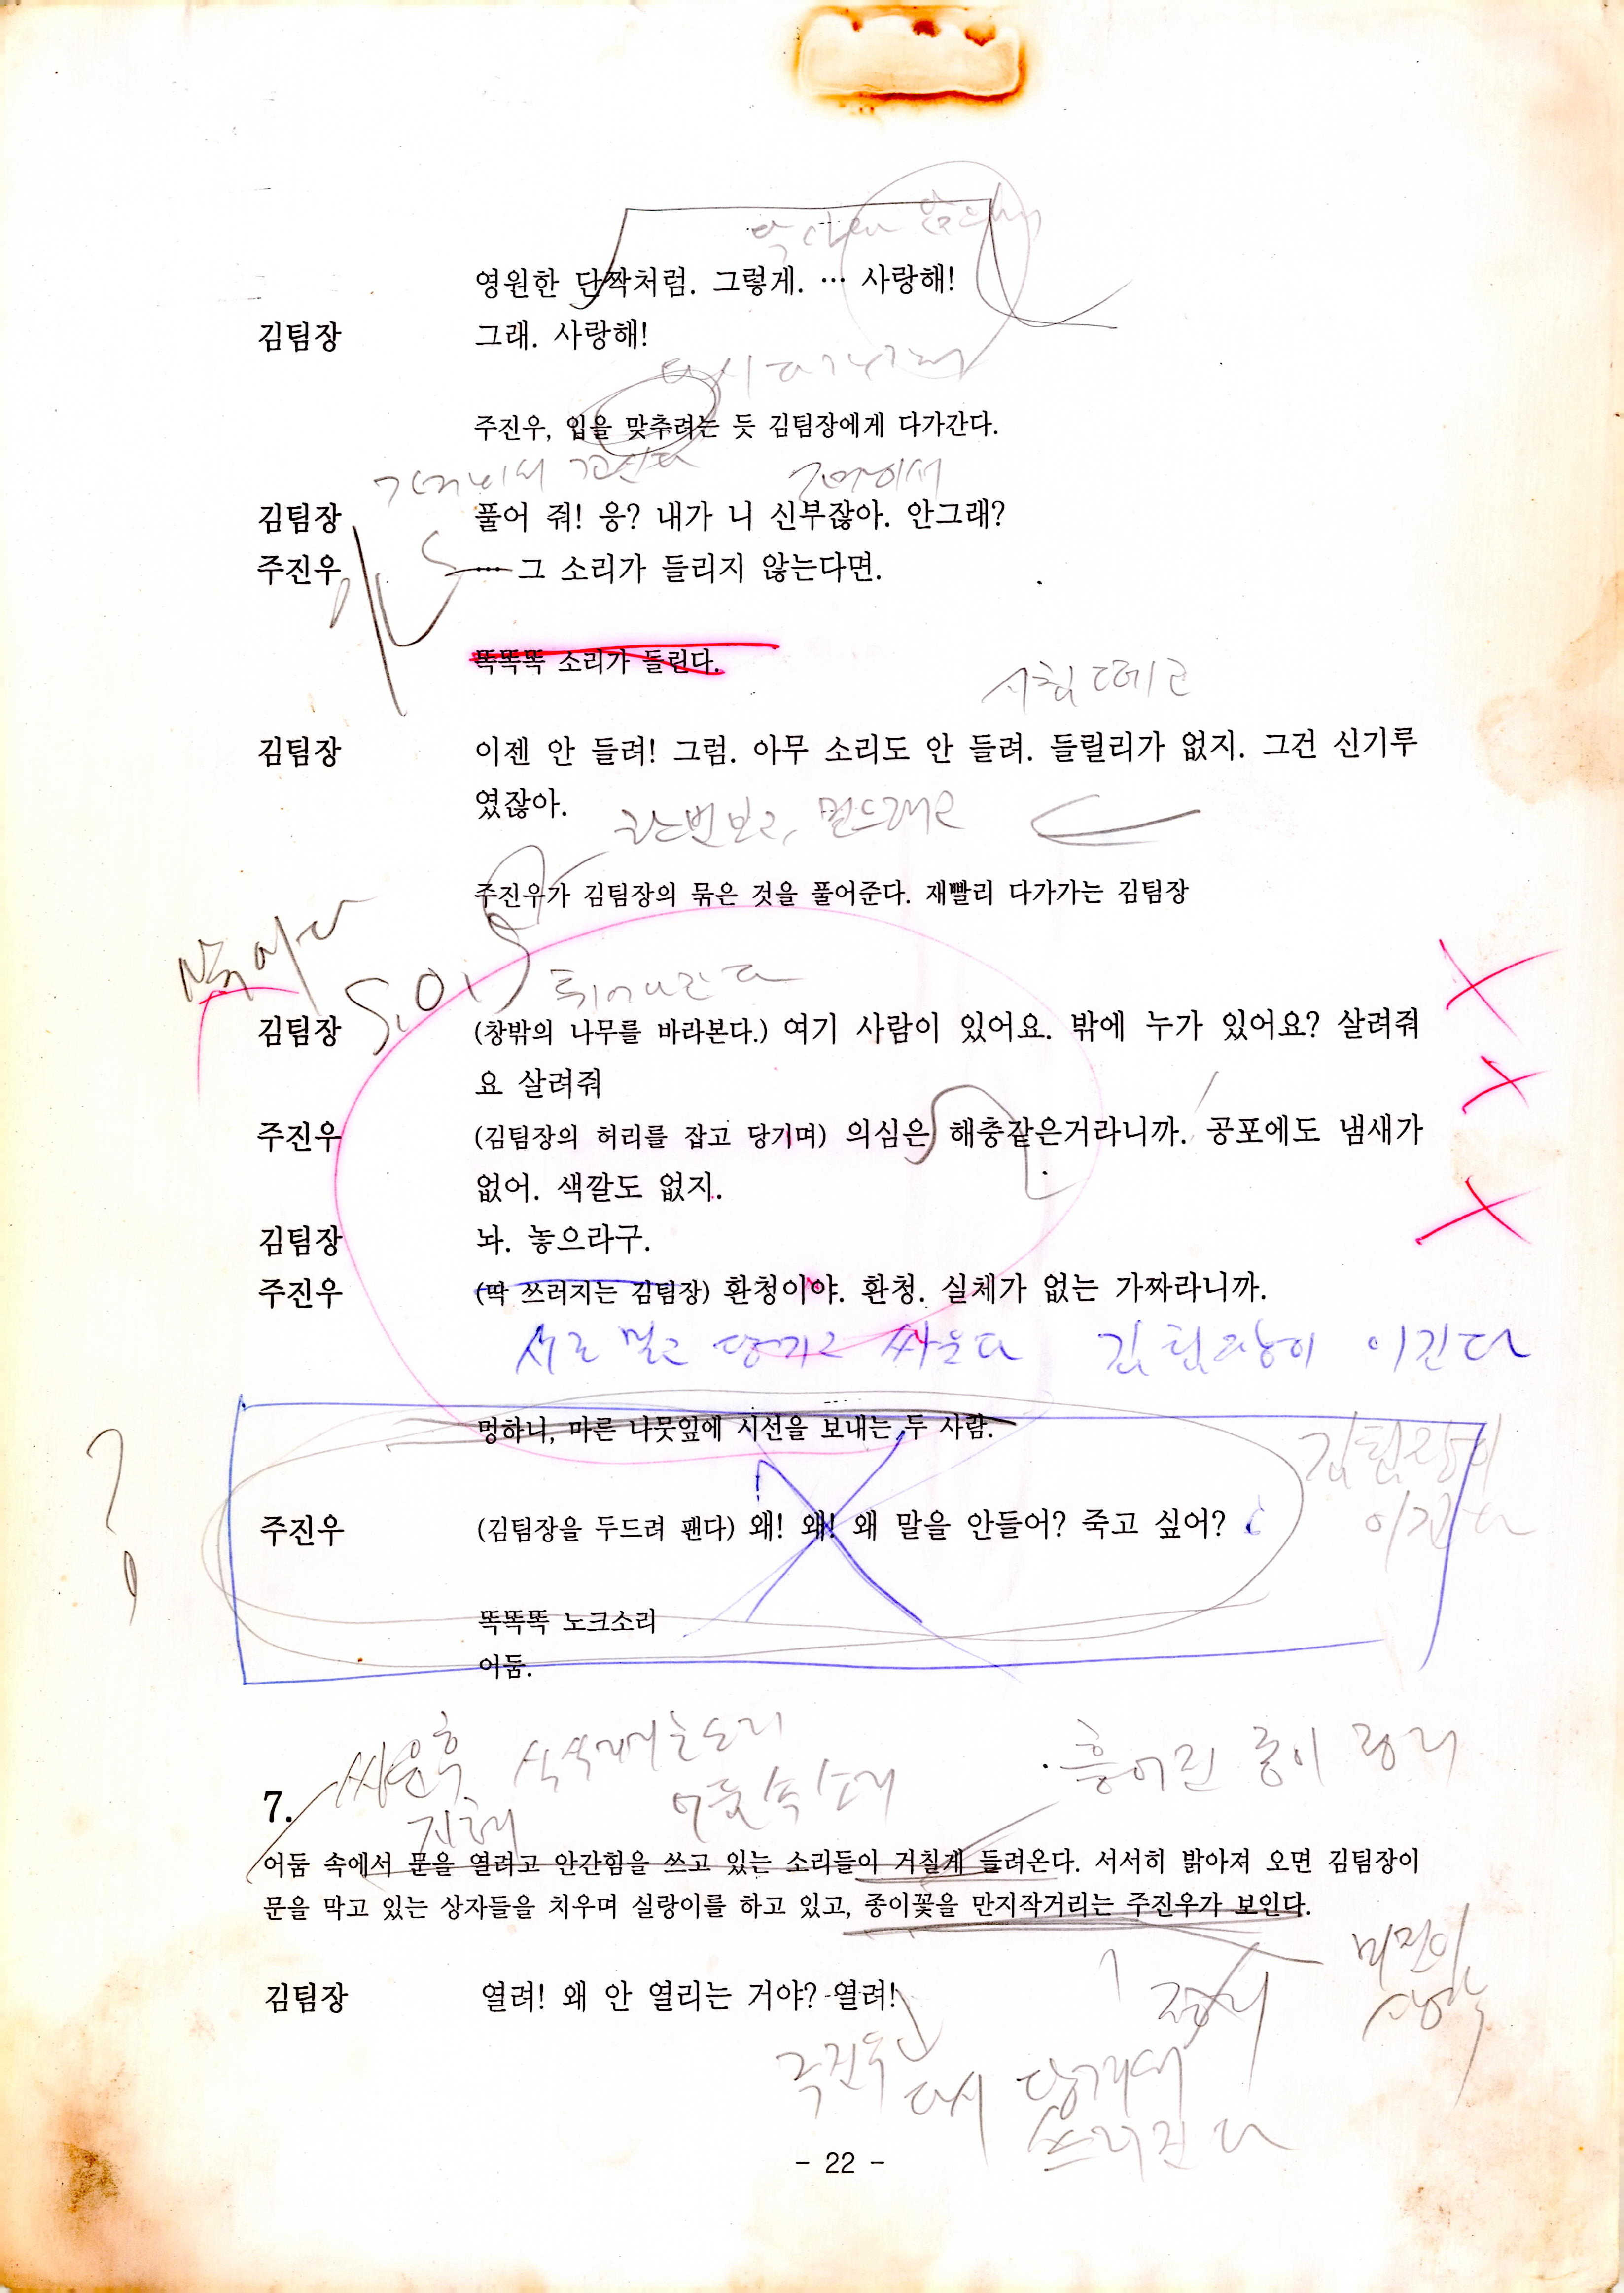 영원한 단짝처럼. 그렇게. … 사랑해!
김팀장 그래. 사랑해!
주진우, 입을 맞추려는 듯 김팀장에게 다가간다.
김팀장 풀어 줘! 응? 내가 니 신부잖아. 안그래?
주진우 … 그 소리가 들리지 않는다면.
똑똑똑 소리가 들린다.
시침 떼고
김팀장 이젠 안 들려! 그럼. 아무 소리도 안 들려. 들릴리가 없지. 그건 신기루
였잖아.
주진우가 김팀장의 묶은 것을 풀어준다. 재빨리 다가가는 김팀장
튀어나간다
김팀장 (창밖의 나무를 바라본다.) 여기 사람이 있어요. 밖에 누가 있어요? 살려줘
요 살려줘
주진우 (김팀장의 허리를 잡고 당기며) 의심은 해충같은거라니까. 공포에도 냄새가
없어. 색깔도 없지.
김팀장 놔. 놓으라구.
주진우 (딱 쓰러지는 김팀장) 환청이야. 환청. 실체가 없는 가짜라니까.
서로 밀고 당기고 싸운다 김팀장이 이긴다
멍하니, 마른 나뭇잎에 시선을 보내는 두 사람.
김팀장이
이긴다
주진우 (김팀장을 두드려 팬다) 왜! 왜! 왜 말을 안들어? 죽고 싶어?
똑똑똑 노크소리
어둠.
싸운후
어둠속 소리
흩어진 종이 정리
7.
어둠 속에서 문을 열려고 안간힘을 쓰고 있는 소리들이 거칠게 들려온다. 서서히 밝아져 오면 김팀장이
문을 막고 있는 상자들을 치우며 실랑이를 하고 있고, 종이꽃을 만지작거리는 주진우가 보인다.
정리
김팀장 열려! 왜 안 열리는 거야? 열려!
다시 당기며
쓰러진다
- 22 -